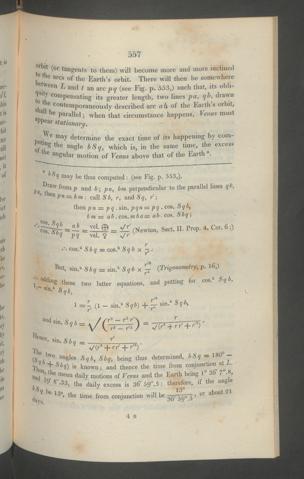 557
orbit (or tangents to them) will become more and more inclined
to the arcs of the Earth's orbit. There will then be somewhere
between L and t an arc pq (see Fig. p. 555,) such that, its obli-
quity compensating its greater length, two lines pa, qb, drawn
to the contemporaneously described arc ab of the Earth's orbit,
shall be parallel; when that circumstance happens, Venus must
appear stationary.
We may determine the exact time of its happening by com-
puting the angle bSq, which is, in the same time, the excess
of the angular motion of Venus above that of the Earth *.
* bSq may be thus computed: (see Fig. p. 555,).
Draw from p and b; pn, bm perpendicular to the parallel lines qb,
pa, then pn = bm: call Sb, r, and Sq, r';
then pn = pq . sin. pqn = pq . cos. Sqb,
bm = ab . cos. mba = ab. cos. Sbq;
∴ cos. Sqb / cos. Sbq = ab / pq = vel. / vel. ♀ = √r' / √r (Newton, Sect. II. Prop. 4. Cor. 6.;)
∴ cos.² Sbq = cos.² Sqb × r / r'.
But, sin.² Sbq = sin.² Sqb × r'² / r² (Trigonometry, p. 16,)
∴ adding these two latter equations, and putting for cos.² Sqb,
1 − sin.² Sqb,
1 = r / r' (1 − sin.² Sqb) + r'² / r² sin.² Sqb,
and sin. Sqb = √( ) = r / √(r² + rr' + r'²).
Hence, sin. Sbq = r' / √(r² + rr' + r'²).
The two angles Sqb, Sbq, being thus determined, bSq = 180° −
(Sqb + Sbq) is known; and thence the time from conjunction at L.
Thus, the mean daily motions of Venus and the Earth being 1° 36' 7".8,
and 59' 8".33, the daily excess is 36' 59".5: therefore, if the angle
bSq be 13°, the time from conjunction will be 13° / 36' 59".5, or about 21
days.
4 B